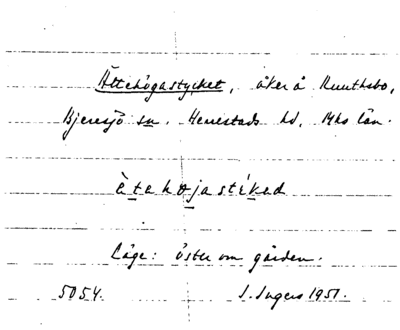 Ättehögastycket, åker å Ruuthsbo,
Bjeresjö sn. Herrestads hd, Mhs län.
ètehøjastíked
Läge: öster om gården.
5054. I. Ingers 1951.